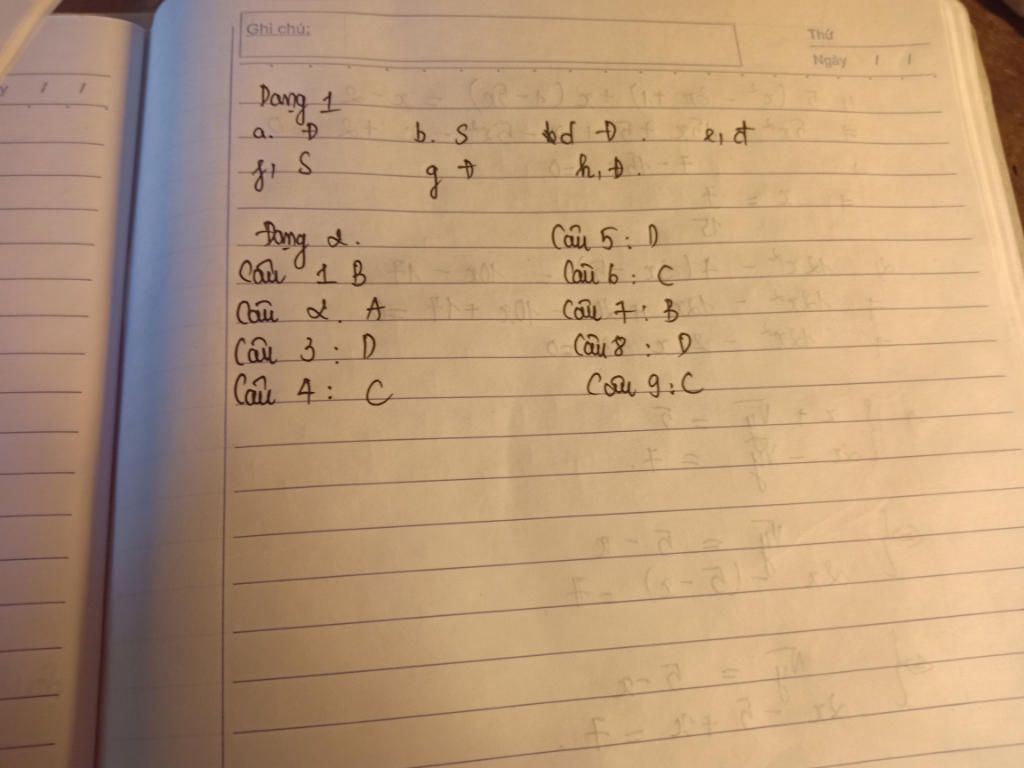 Ghi chú:
Thứ
Ngày / /
Dạng 1
a. Đ b. S d Đ. e, đ
f, S g Đ h, Đ.
Dạng 2.
Câu 1 B
Câu 2. A
Câu 3 : D
Câu 4 : C
Câu 5 : D
Câu 6 : C
Câu 7 : B
Câu 8 : D
Câu 9 : C